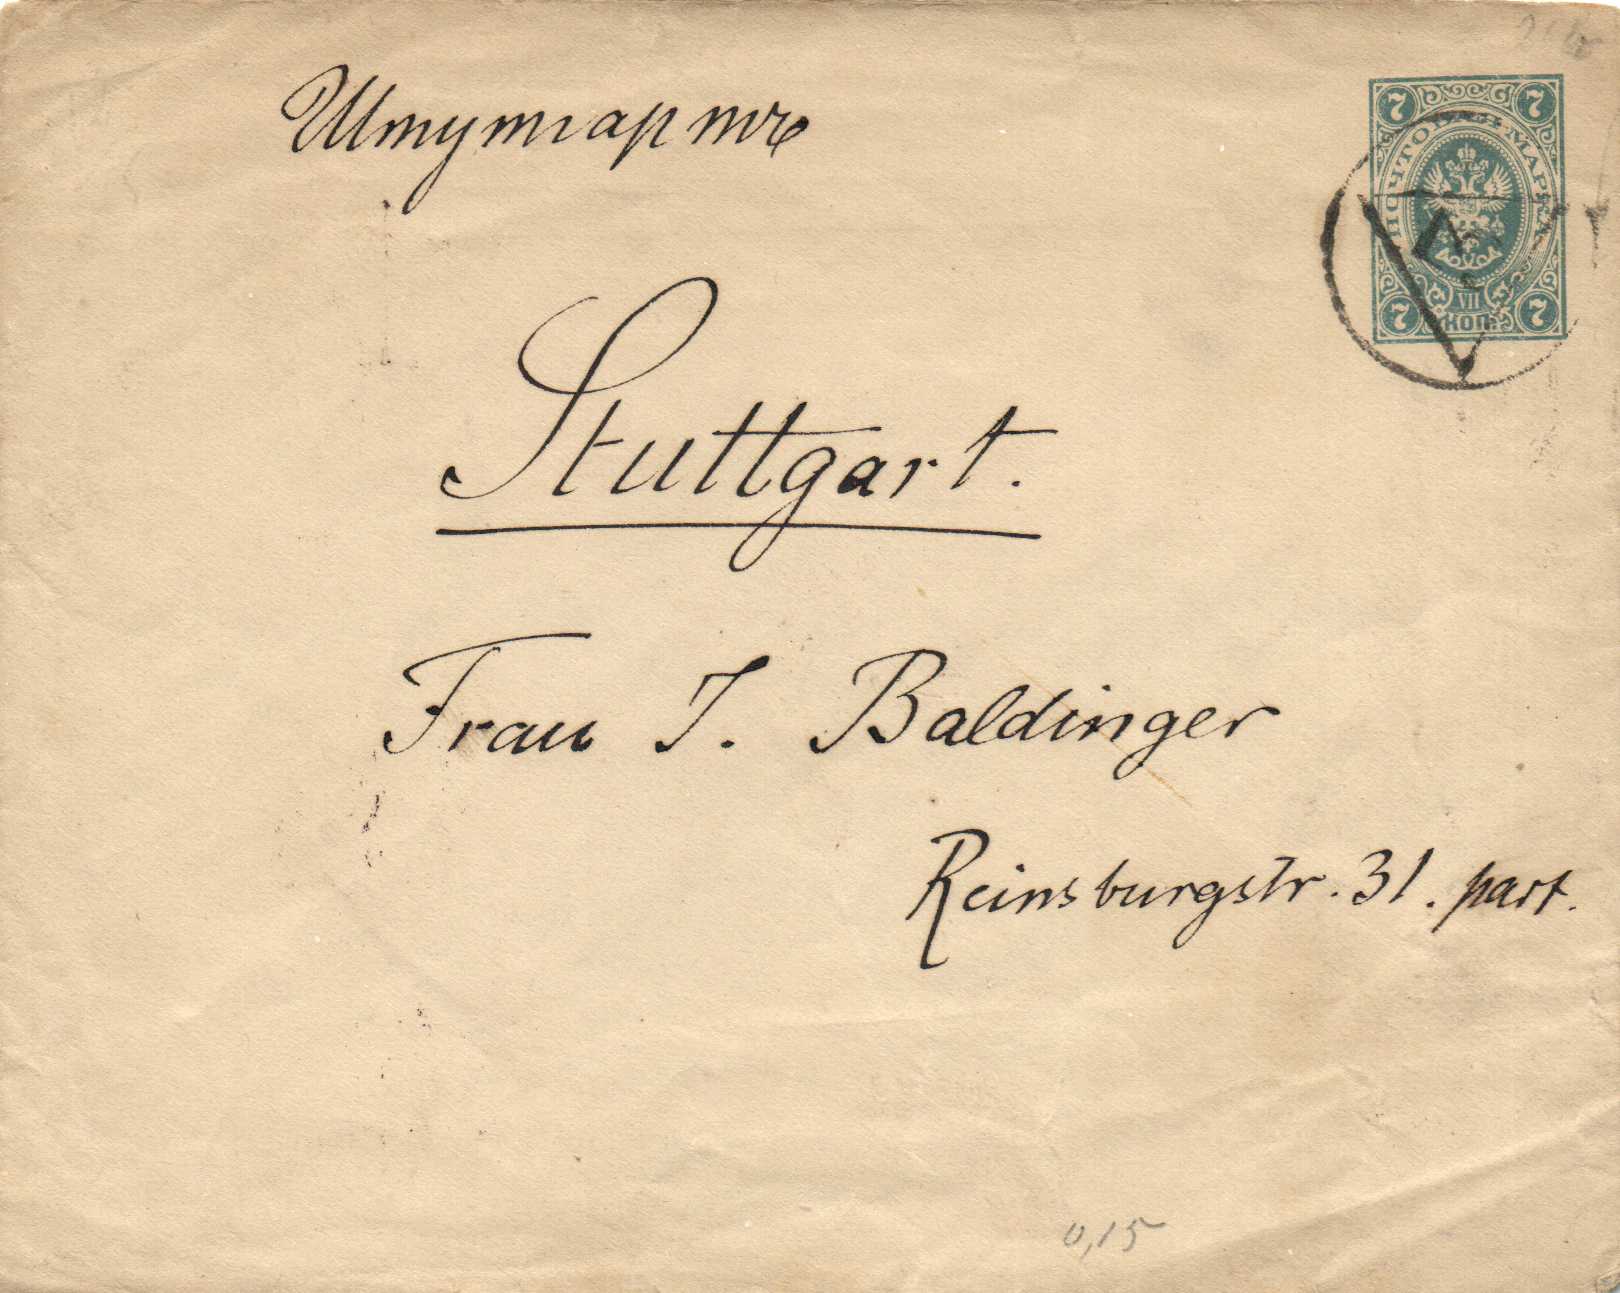 Штутгартъ
7 7
ПОЧТОВАЯ МАРКА
VII
КОП.
7 7
Stuttgart.
Frau J. Baldinger
Reinsburgstr. 31. part.
0,15